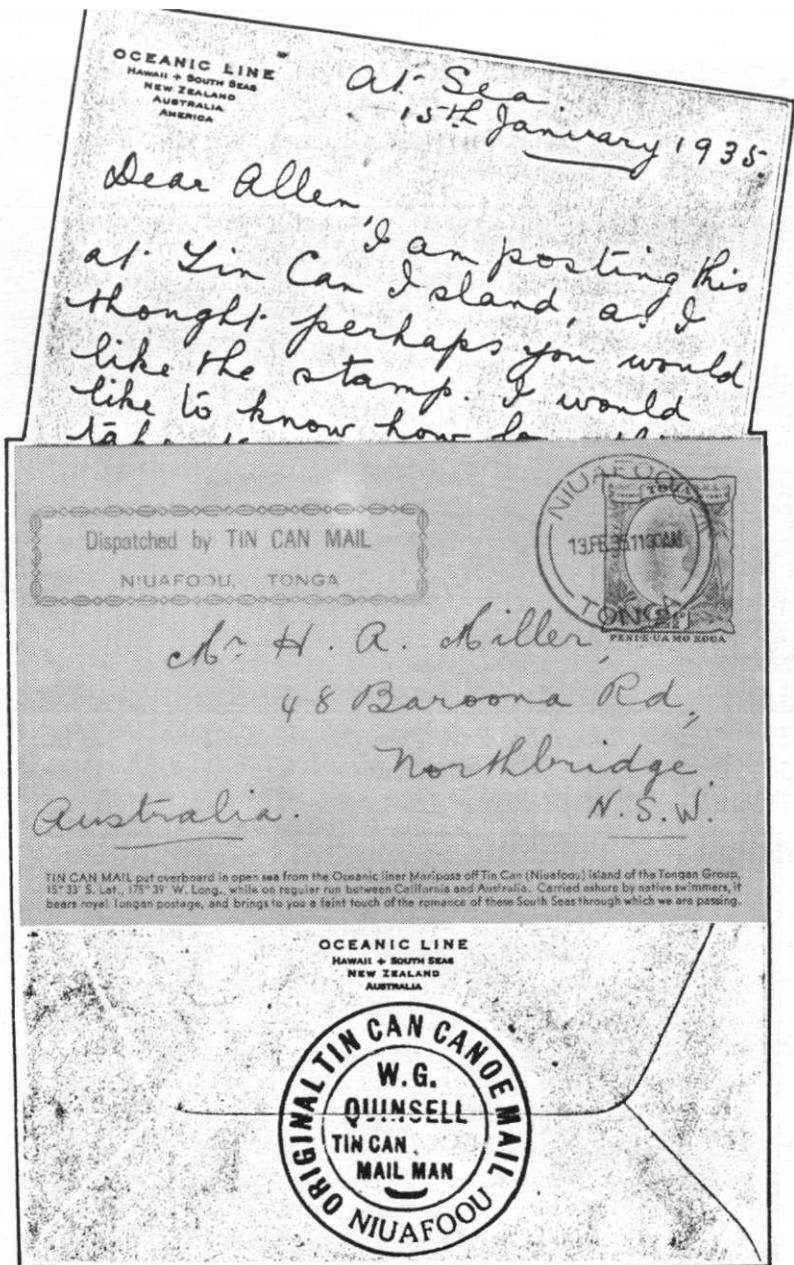 OCEANIC LINE
HAWAII + SOUTH SEAS
NEW ZEALAND
AUSTRALIA
AMERICA
At Sea.
15th January 1935.
Dear Allen,
I am posting this
at Tin Can Island, as I
thought perhaps you would
like the stamp. I would
like to know how
Dispatched by TIN CAN MAIL
NIUAFOOU, TONGA
NIUAFOOU
13FE35.1130AM
TONGA
Mr H. A. Miller,
48 Baroona Rd,
Northbridge.
Australia. N.S.W.
TIN CAN MAIL put overboard in open sea from the Oceanic liner Mariposa off Tin Can (Niuafoou) island of the Tongan Group,
15° 33' S. Lat., 175° 39' W. Long., while on regular run between California and Australia. Carried ashore by native swimmers, it
bears royal Tongan postage, and brings to you a faint touch of the romance of these South Seas through which we are passing.
OCEANIC LINE
HAWAII + SOUTH SEAS
NEW ZEALAND
AUSTRALIA
ORIGINAL TIN CAN CANOE MAIL
W.G.
QUINSELL
TIN CAN
MAIL MAN
NIUAFOOU